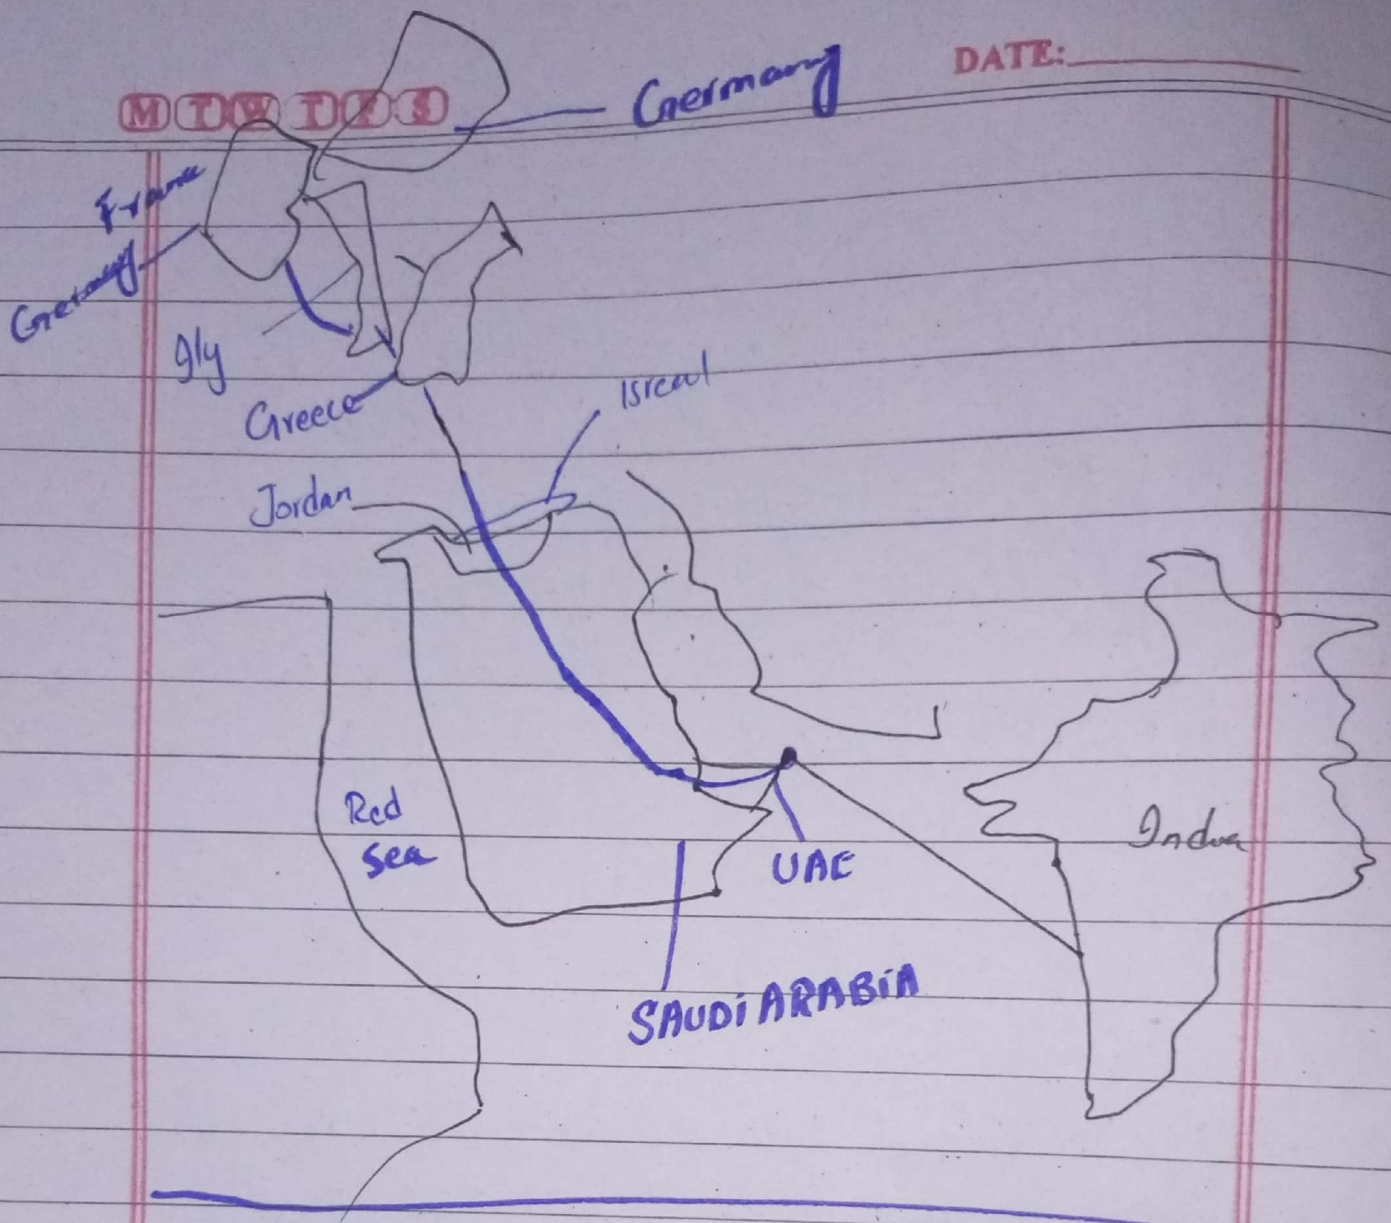 DATE:
M T W T F S
Germany
France
Germany
Itly
Greece
Isreal
Jordan
Red
Sea
India
UAE
SAUDi ARABiA